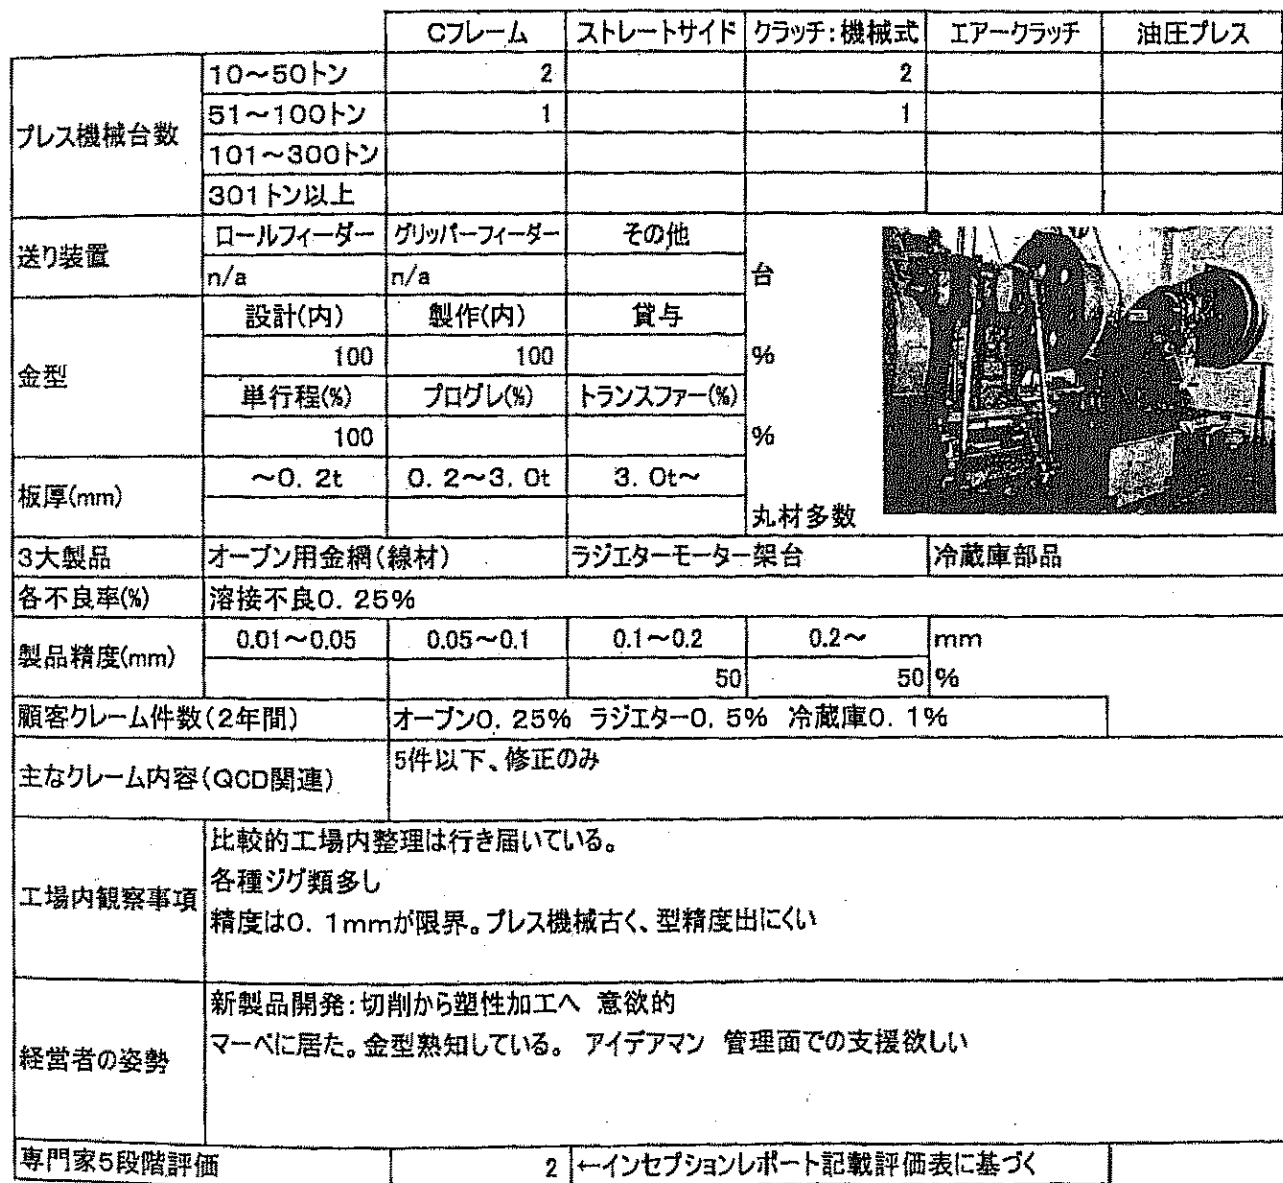 Cフレーム ストレートサイド クラッチ:機械式 エアークラッチ 油圧プレス
プレス機械台数
10～50トン 2 2
51～100トン 1 1
101～300トン
301トン以上
送り装置
ロールフィーダー グリッパーフィーダー その他
n/a n/a 台
金型
設計(内) 製作(内) 貸与
100 100 %
単行程(%) プログレ(%) トランスファー(%)
100 %
板厚(mm)
～0.2t 0.2～3.0t 3.0t～
丸材多数
3大製品 オーブン用金網(線材) ラジエターモーター架台 冷蔵庫部品
各不良率(%) 溶接不良0.25%
製品精度(mm)
0.01～0.05 0.05～0.1 0.1～0.2 0.2～ mm
50 50 %
顧客クレーム件数(2年間) オーブン0.25% ラジエター0.5% 冷蔵庫0.1%
主なクレーム内容(QCD関連) 5件以下、修正のみ
工場内観察事項
比較的工場内整理は行き届いている。
各種ジグ類多し
精度は0.1mmが限界。プレス機械古く、型精度出にくい
経営者の姿勢
新製品開発:切削から塑性加工へ 意欲的
マーベに居た。金型熟知している。 アイデアマン 管理面での支援欲しい
専門家5段階評価 2 ←インセプションレポート記載評価表に基づく